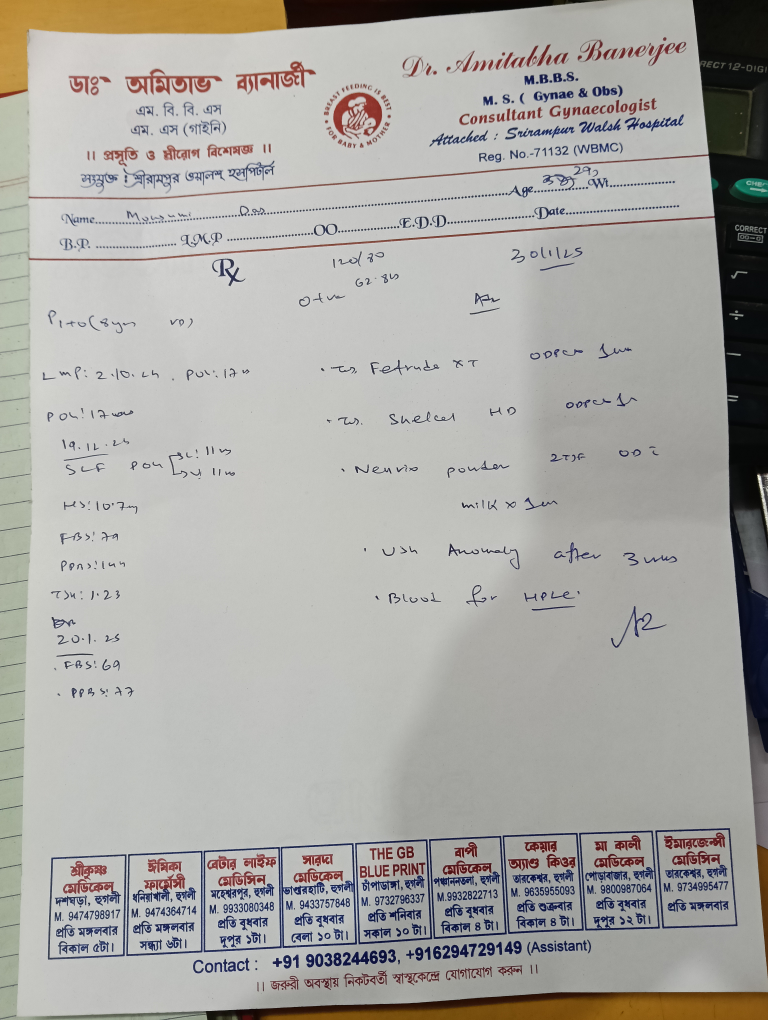 ডাঃ অমিতাভ ব্যানার্জী
এম. বি. বি. এস
এম. এস (গাইনি)
।। প্রসূতি ও স্ত্রীরোগ বিশেষজ্ঞ ।।
সংযুক্ত : শ্রীরামপুর ওয়ালশ হসপিটাল
BREAST FEEDING IS BEST
FOR BABY & MOTHER
Dr. Amitabha Banerjee
M.B.B.S.
M. S. ( Gynae & Obs)
Consultant Gynaecologist
Attached : Srirampur Walsh Hospital
Reg. No.-71132 (WBMC)
Name Das Age 29 Wt
B.P. L.M.P OO E.D.D Date
Rx
120/80
62.8
30/1/25
LMP: 2.10.24
POG: 17
19.12.24
SLF POG 11
11
Hb: 10.7
FBS: 79
PPBS: 144
TSH: 1.23
20.1.25
. FBS: 69
. PPBS: 77
XT ODPC
Shelcal HD ODPC
powder 2TSF OD
milk x
USG Anomaly after 3
Blood for HPLC.
শ্রীকৃষ্ণ মেডিকেল
দশঘড়া, হুগলী
M. 9474798917
প্রতি মঙ্গলবার
বিকাল ৫টা।
ঈষিকা ফার্মেসী
ধনিয়াখালী, হুগলী
M. 9474364714
প্রতি মঙ্গলবার
সন্ধ্যা ৬টা।
বেটার লাইফ মেডিসিন
মহেশ্বরপুর, হুগলী
M. 9933080348
প্রতি বুধবার
দুপুর ১টা।
সারদা মেডিকেল
ভান্ডারহাটি, হুগলী
M. 9433757848
প্রতি বুধবার
বেলা ১০ টা।
THE GB BLUE PRINT
চাঁপাডাঙ্গা, হুগলী
M. 9732796337
প্রতি শনিবার
সকাল ১০ টা।
বাপী মেডিকেল
হুগলী
M. 9932822713
প্রতি বুধবার
বিকাল ৪ টা।
কেয়ার অ্যান্ড কিওর
তারকেশ্বর, হুগলী
M. 9635955093
প্রতি শুক্রবার
বিকাল ৪ টা।
মা কালী মেডিকেল
পোড়াবাজার, হুগলী
M. 9800987064
প্রতি বুধবার
দুপুর ১২ টা।
ইমারজেন্সী মেডিসিন
তারকেশ্বর, হুগলী
M. 9734995477
প্রতি মঙ্গলবার
Contact : +91 9038244693, +916294729149 (Assistant)
।। জরুরী অবস্থায় নিকটবর্তী স্বাস্থ্যকেন্দ্রে যোগাযোগ করুন ।।
RECT 12-DIGI
CHE
CORRECT
00→0
√
÷
−
=